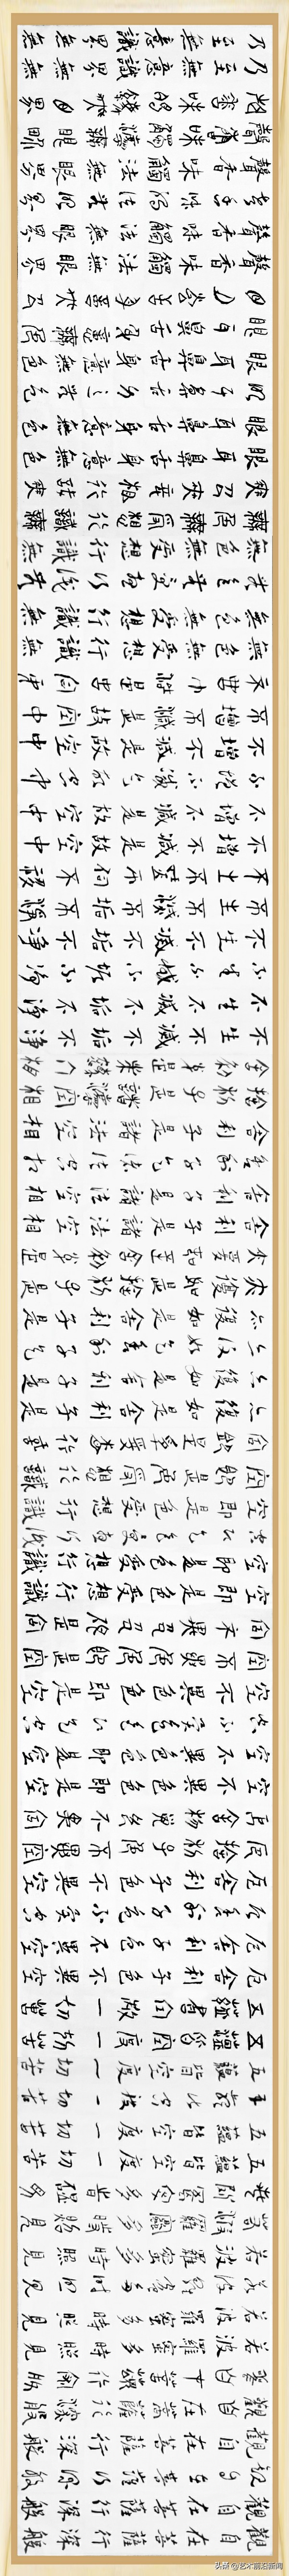 觀自在菩薩行深般
觀自在菩薩行深般
觀自在菩薩行深般
觀自在菩薩行深般
觀自在菩薩行深般
觀自在菩薩行深般
若波羅蜜多時照見
若波羅蜜多時照見
若波羅蜜多時照見
若波羅蜜多時照見
若波羅蜜多時照見
若波羅蜜多時照見
五蘊皆空度一切苦
五蘊皆空度一切苦
五蘊皆空度一切苦
五蘊皆空度一切苦
五蘊皆空度一切苦
五蘊皆空度一切苦
厄舍利子色不異空
厄舍利子色不異空
厄舍利子色不異空
厄舍利子色不異空
厄舍利子色不異空
厄舍利子色不異空
空不異色色即是空
空不異色色即是空
空不異色色即是空
空不異色色即是空
空不異色色即是空
空不異色色即是空
空即是色受想行識
空即是色受想行識
空即是色受想行識
空即是色受想行識
空即是色受想行識
空即是色受想行識
亦復如是舍利子是
亦復如是舍利子是
亦復如是舍利子是
亦復如是舍利子是
亦復如是舍利子是
亦復如是舍利子是
舍利子是諸法空相
舍利子是諸法空相
舍利子是諸法空相
舍利子是諸法空相
舍利子是諸法空相
舍利子是諸法空相
不生不滅不垢不淨
不生不滅不垢不淨
不生不滅不垢不淨
不生不滅不垢不淨
不生不滅不垢不淨
不生不滅不垢不淨
不增不減是故空中
不增不減是故空中
不增不減是故空中
不增不減是故空中
不增不減是故空中
不增不減是故空中
無色無受想行識無
無色無受想行識無
無色無受想行識無
無色無受想行識無
無色無受想行識無
無色無受想行識無
眼耳鼻舌身意無色
眼耳鼻舌身意無色
眼耳鼻舌身意無色
眼耳鼻舌身意無色
眼耳鼻舌身意無色
眼耳鼻舌身意無色
聲香味觸法無眼界
聲香味觸法無眼界
聲香味觸法無眼界
聲香味觸法無眼界
聲香味觸法無眼界
聲香味觸法無眼界
乃至無意識界無
乃至無意識界無
头条 @艺术前沿新闻